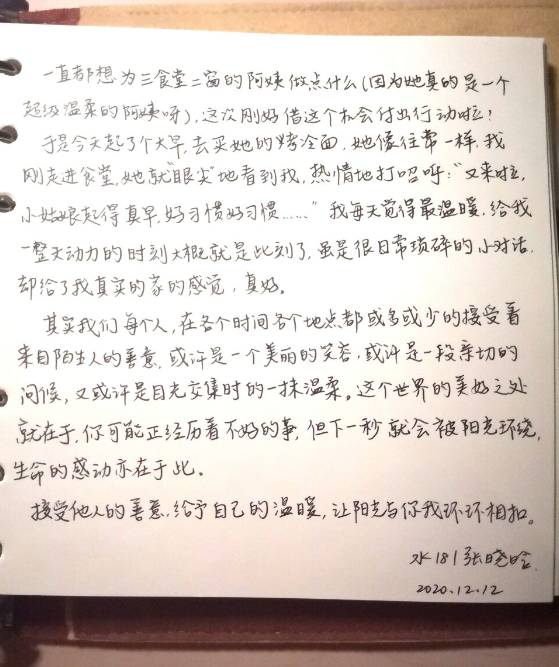 一直都想为三食堂二窗的阿姨做点什么(因为她真的是一个
超级温柔的阿姨呀),这次刚好借这个机会付出行动啦!
于是今天起了个大早,去买她的烤冷面,她像往常一样,我
刚走进食堂,她就“眼尖”地看到我,热情地打招呼:“又来啦,
小姑娘起得真早,好习惯好习惯……”我每天觉得最温暖,给我
一整天动力的时刻大概就是此刻了,虽是很日常琐碎的小对话,
却给了我真实的家的感觉,真好。
其实我们每个人,在各个时间各个地点都或多或少的接受着
来自陌生人的善意,或许是一个美丽的笑容,或许是一段亲切的
问候,又或许是目光交集时的一抹温柔。这个世界的美好之处
就在于,你可能正经历着不好的事,但下一秒就会被阳光环绕,
生命的感动亦在于此。
接受他人的善意,给予自己的温暖,让阳光与你我环环相扣。
水181张晓晗
2020.12.12